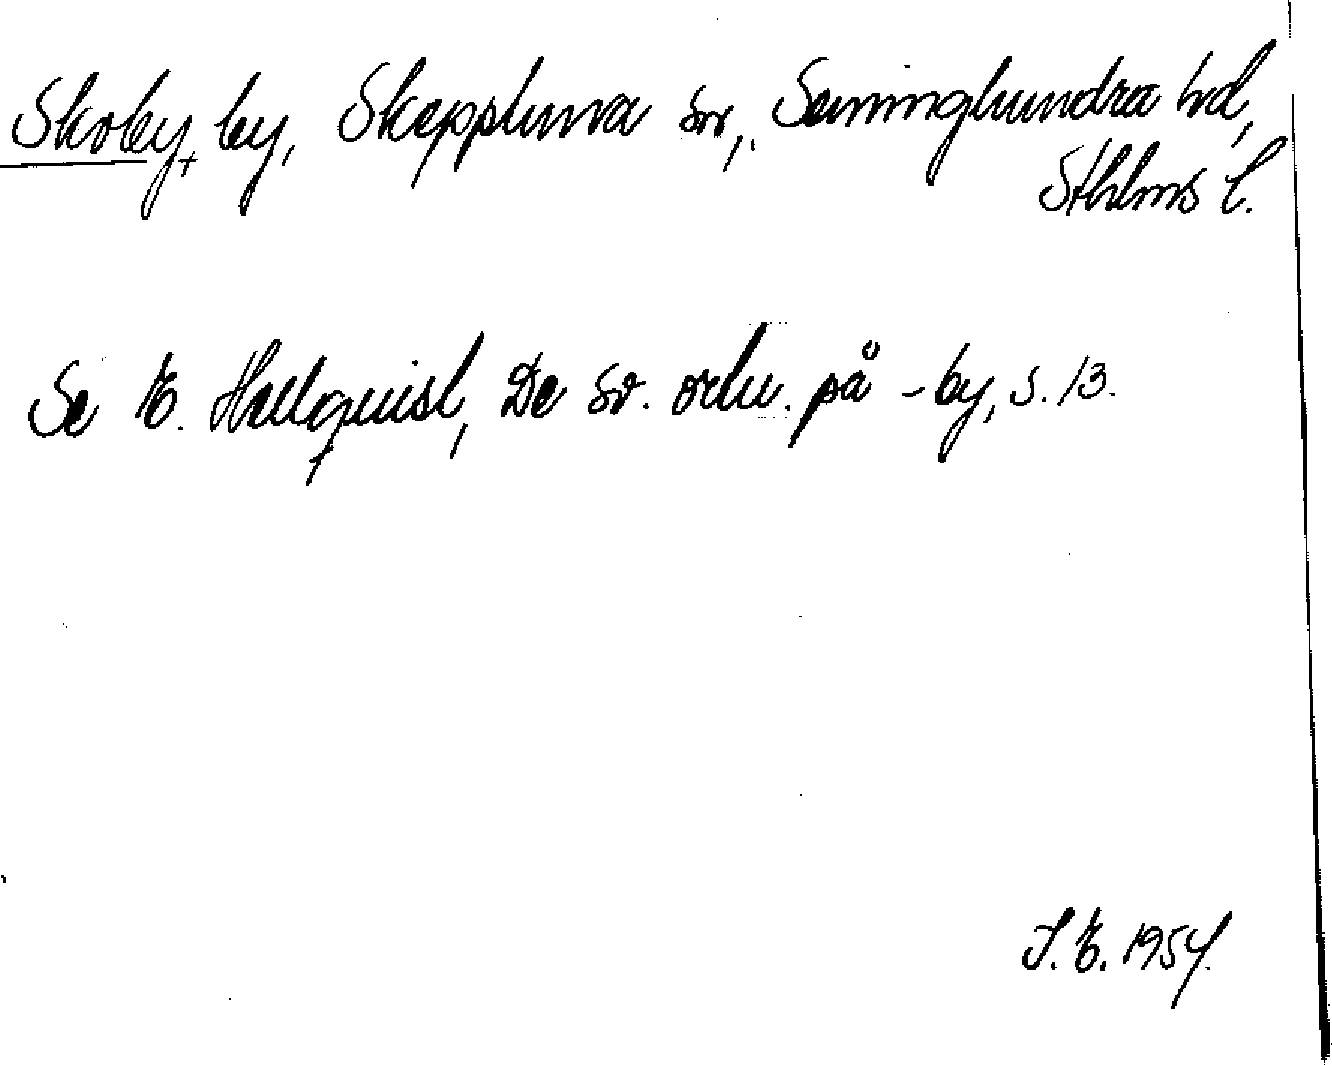 Skoby, by, Skepptuna sn, Seminghundra hd,
Sthlms l.
Se E. Hellquist, De sv. ortn. på -by, s. 13.
S. E. 1954.